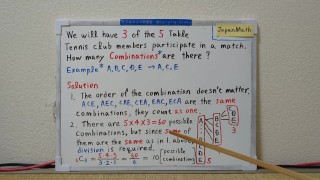 JapanMath
We will have 3 of the 5 Table
Tennis club members participate in a match.
How many Combinations* are there?
Example* A,B,C,D,E → A,C,E
Solution
1. The order of the combination doesn't matter.
ACE, AEC, CAE, CEA, EAC, ECA are the same
combinations, they count as one.
2. There are 5×4×3=60 possible
combinations, but since some of
them are the same as in 1. above,
division is required.
possible
combinations
3
5